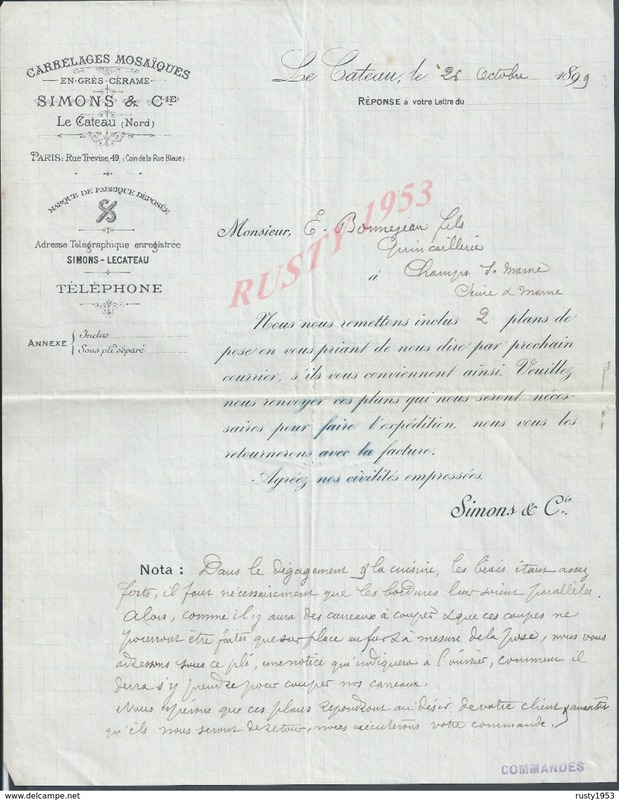 CARRELAGES MOSAÏQUES
EN-GRÈS-CÉRAME
SIMONS & CIE
Le Cateau (Nord)
PARIS: Rue Trévise, 49, (Coin de la Rue Bleue)
MARQUE DE FABRIQUE DÉPOSÉE
Adresse Télégraphique enregistrée
SIMONS-LECATEAU
TÉLÉPHONE
ANNEXE { Inclus
Sous pli séparé
Le Cateau, le 26 Octobre 1899
RÉPONSE à votre Lettre du
Monsieur, E. Bonnejean fils
Quincaillerie
à Champs S. Marne
Seine & Marne
RUSTY 1953
Nous nous remettons inclus 2 plans de
pose en vous priant de nous dire par prochain
courrier, s'ils vous conviennent ainsi. Veuillez
nous renvoyer ces plans qui nous seront néces-
saires pour faire l'expédition, nous vous les
retournerons avec la facture.
Agréez nos civilités empressées.
Simons & Cie.
Nota : Dans le dégagement & la cuisine, les biais étant assez
forts, il faut nécessairement que les bordures leur soient parallèles.
Alors, comme il y aura des carreaux à couper & que ces coupes ne
pourront être faites que sur place au fur & à mesure de la pose, nous vous
adressons sous ce pli, une notice qui indiquera à l'ouvrier, comment il
devra s'y prendre pour couper nos carreaux.
Nous espérons que ces plans répondront au désir de votre client &
qu'ils nous seront de retour, nous exécuterons votre commande.
COMMANDES
delcampe.net
rusty1953